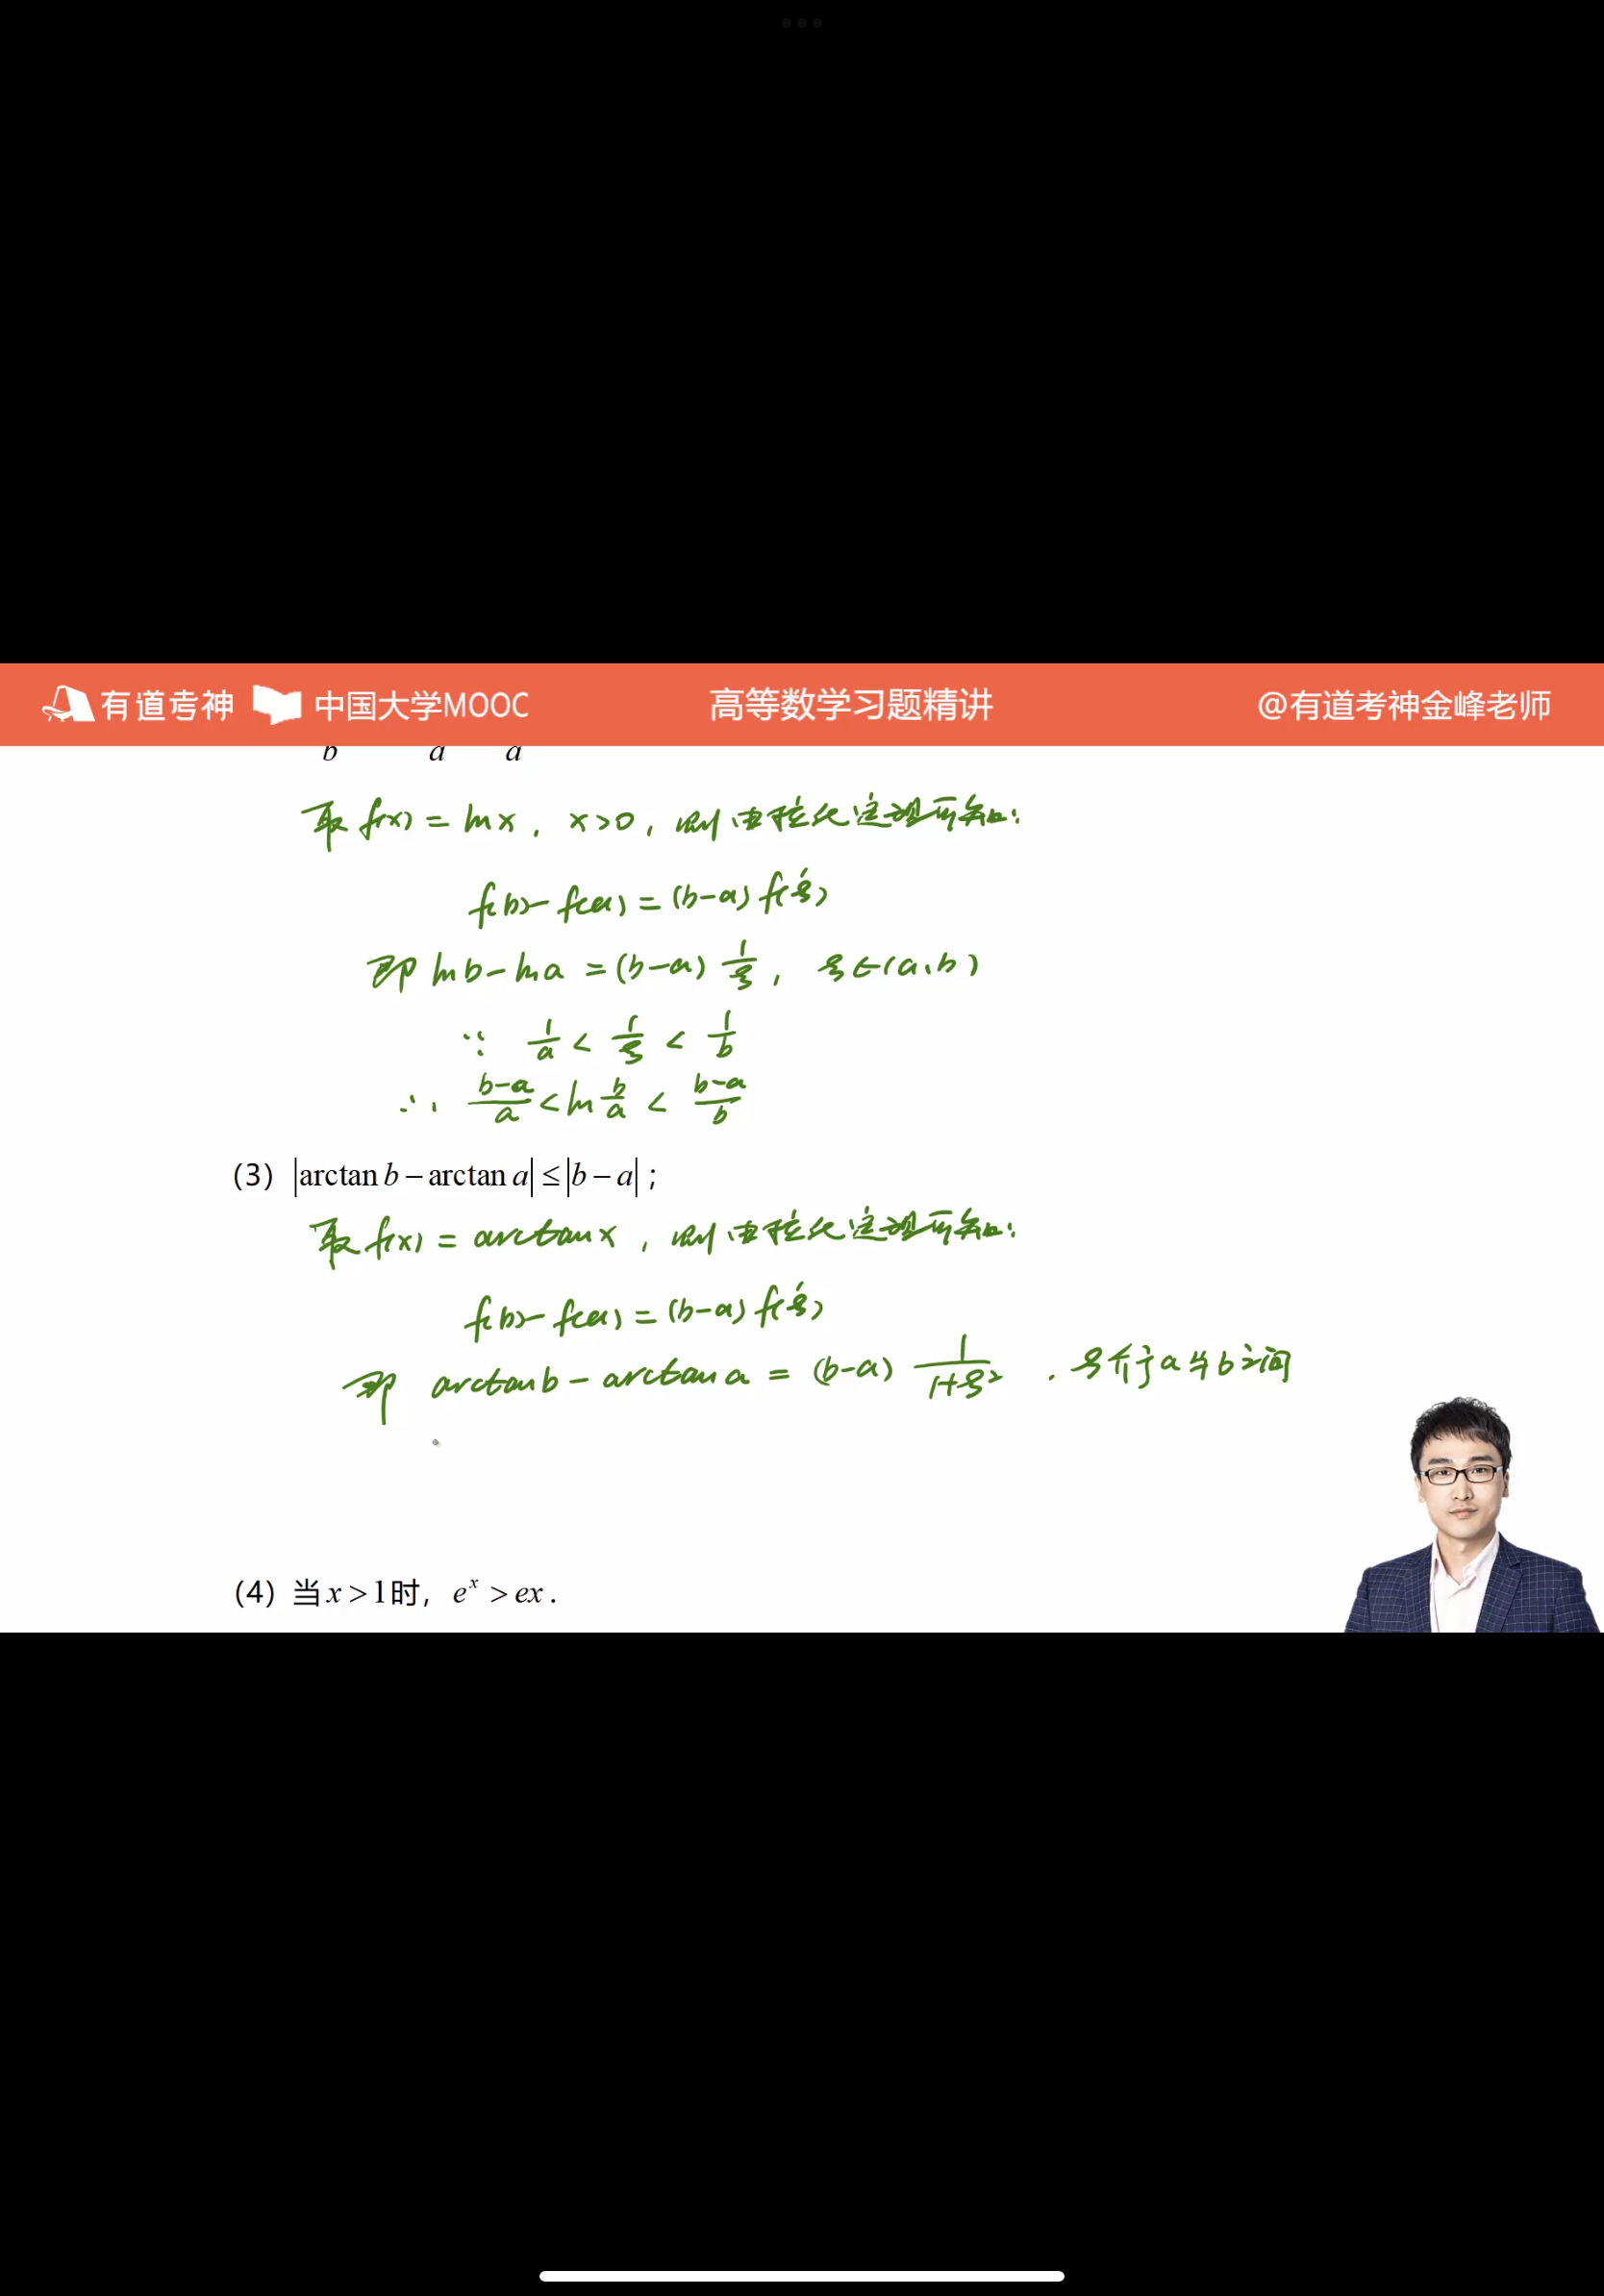 有道考神 中国大学MOOC 高等数学习题精讲 @有道考神金峰老师
b a a
取 f(x) = ln x , x>0 , 则由拉氏定理可知:
f(b)-f(a) = (b-a) f'(ξ)
即 ln b - ln a = (b-a) 1/ξ , ξ∈(a,b)
∵ 1/a < 1/ξ < 1/b
∴ (b-a)/a < ln b/a < (b-a)/b
(3) |arctan b - arctan a| ≤ |b - a| ;
取 f(x) = arctan x , 则由拉氏定理可知:
f(b)-f(a) = (b-a) f'(ξ)
即 arctan b - arctan a = (b-a) 1/(1+ξ²) . ξ介于a与b之间
(4) 当 x >1时, eˣ > ex .